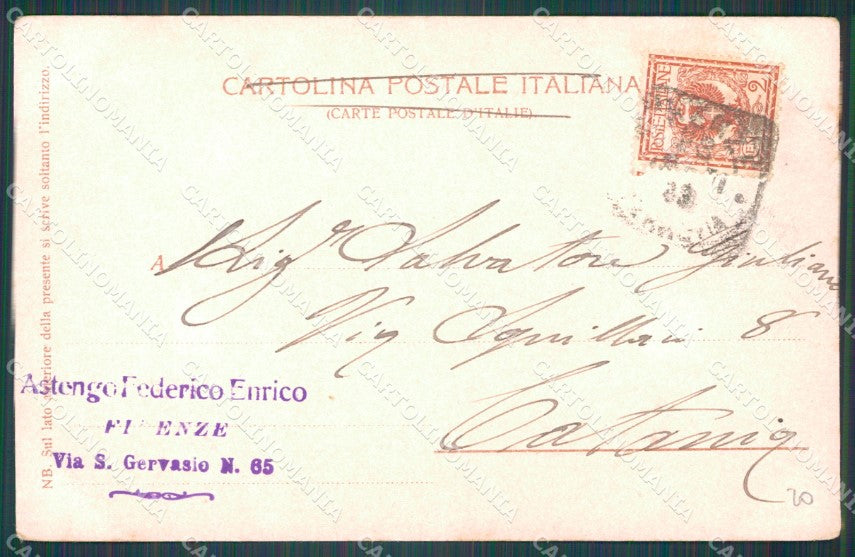 CARTOLINA POSTALE ITALIANA
(CARTE POSTALE D'ITALIE)
POSTE ITALIANE
2
A Sigr Salvatore Giuliano
Via Squillaci 8
Catania
Astengo Federico Enrico
FI ENZE
Via S. Gervasio N. 65
NB. Sul lato anteriore della presente si scrive soltanto l'indirizzo.
20
CARTOLINOMANIA